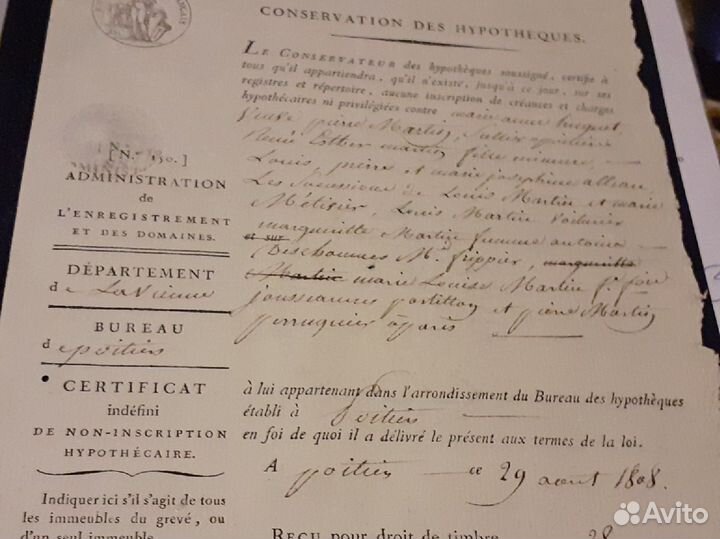 FRANÇAIS
CONSERVATION DES HYPOTHÈQUES.
LE CONSERVATEUR des hypothèques soussigné, certifie à
tous qu'il appartiendra, qu'il n'existe, jusqu'à ce jour, sur ses
registres et répertoire, aucune inscription de créances et charges
hypothécaires ni privilégiées contre marie anne huguet,
Veuve pierre Martin,
Renée Esther martin fille mineure,
Louis, pierre et marie josephine
Les Successions de Louis Martin et marie
Métivier, Louis Martin Voiturier
margueritte Martin femme antoine
et sur
Deschaumes Md. frippier, margueritte
Martin marie Louise Martin f.
et pierre Martin
perruquier à paris
[N.° 150.]
ADMINISTRATION
de
L'ENREGISTREMENT
ET DES DOMAINES.
DÉPARTEMENT
de La Vienne
BUREAU
de poitiers
CERTIFICAT
indéfini
DE NON-INSCRIPTION
HYPOTHÉCAIRE.
à lui appartenant dans l'arrondissement du Bureau des hypothèques
établi à Poitiers
en foi de quoi il a délivré le présent aux termes de la loi.
A poitiers ce 29 aout 1808.
Indiquer ici s'il s'agit de tous
les immeubles du grevé, ou
d'un seul immeuble
REÇU pour droit de timbre 28
Avito